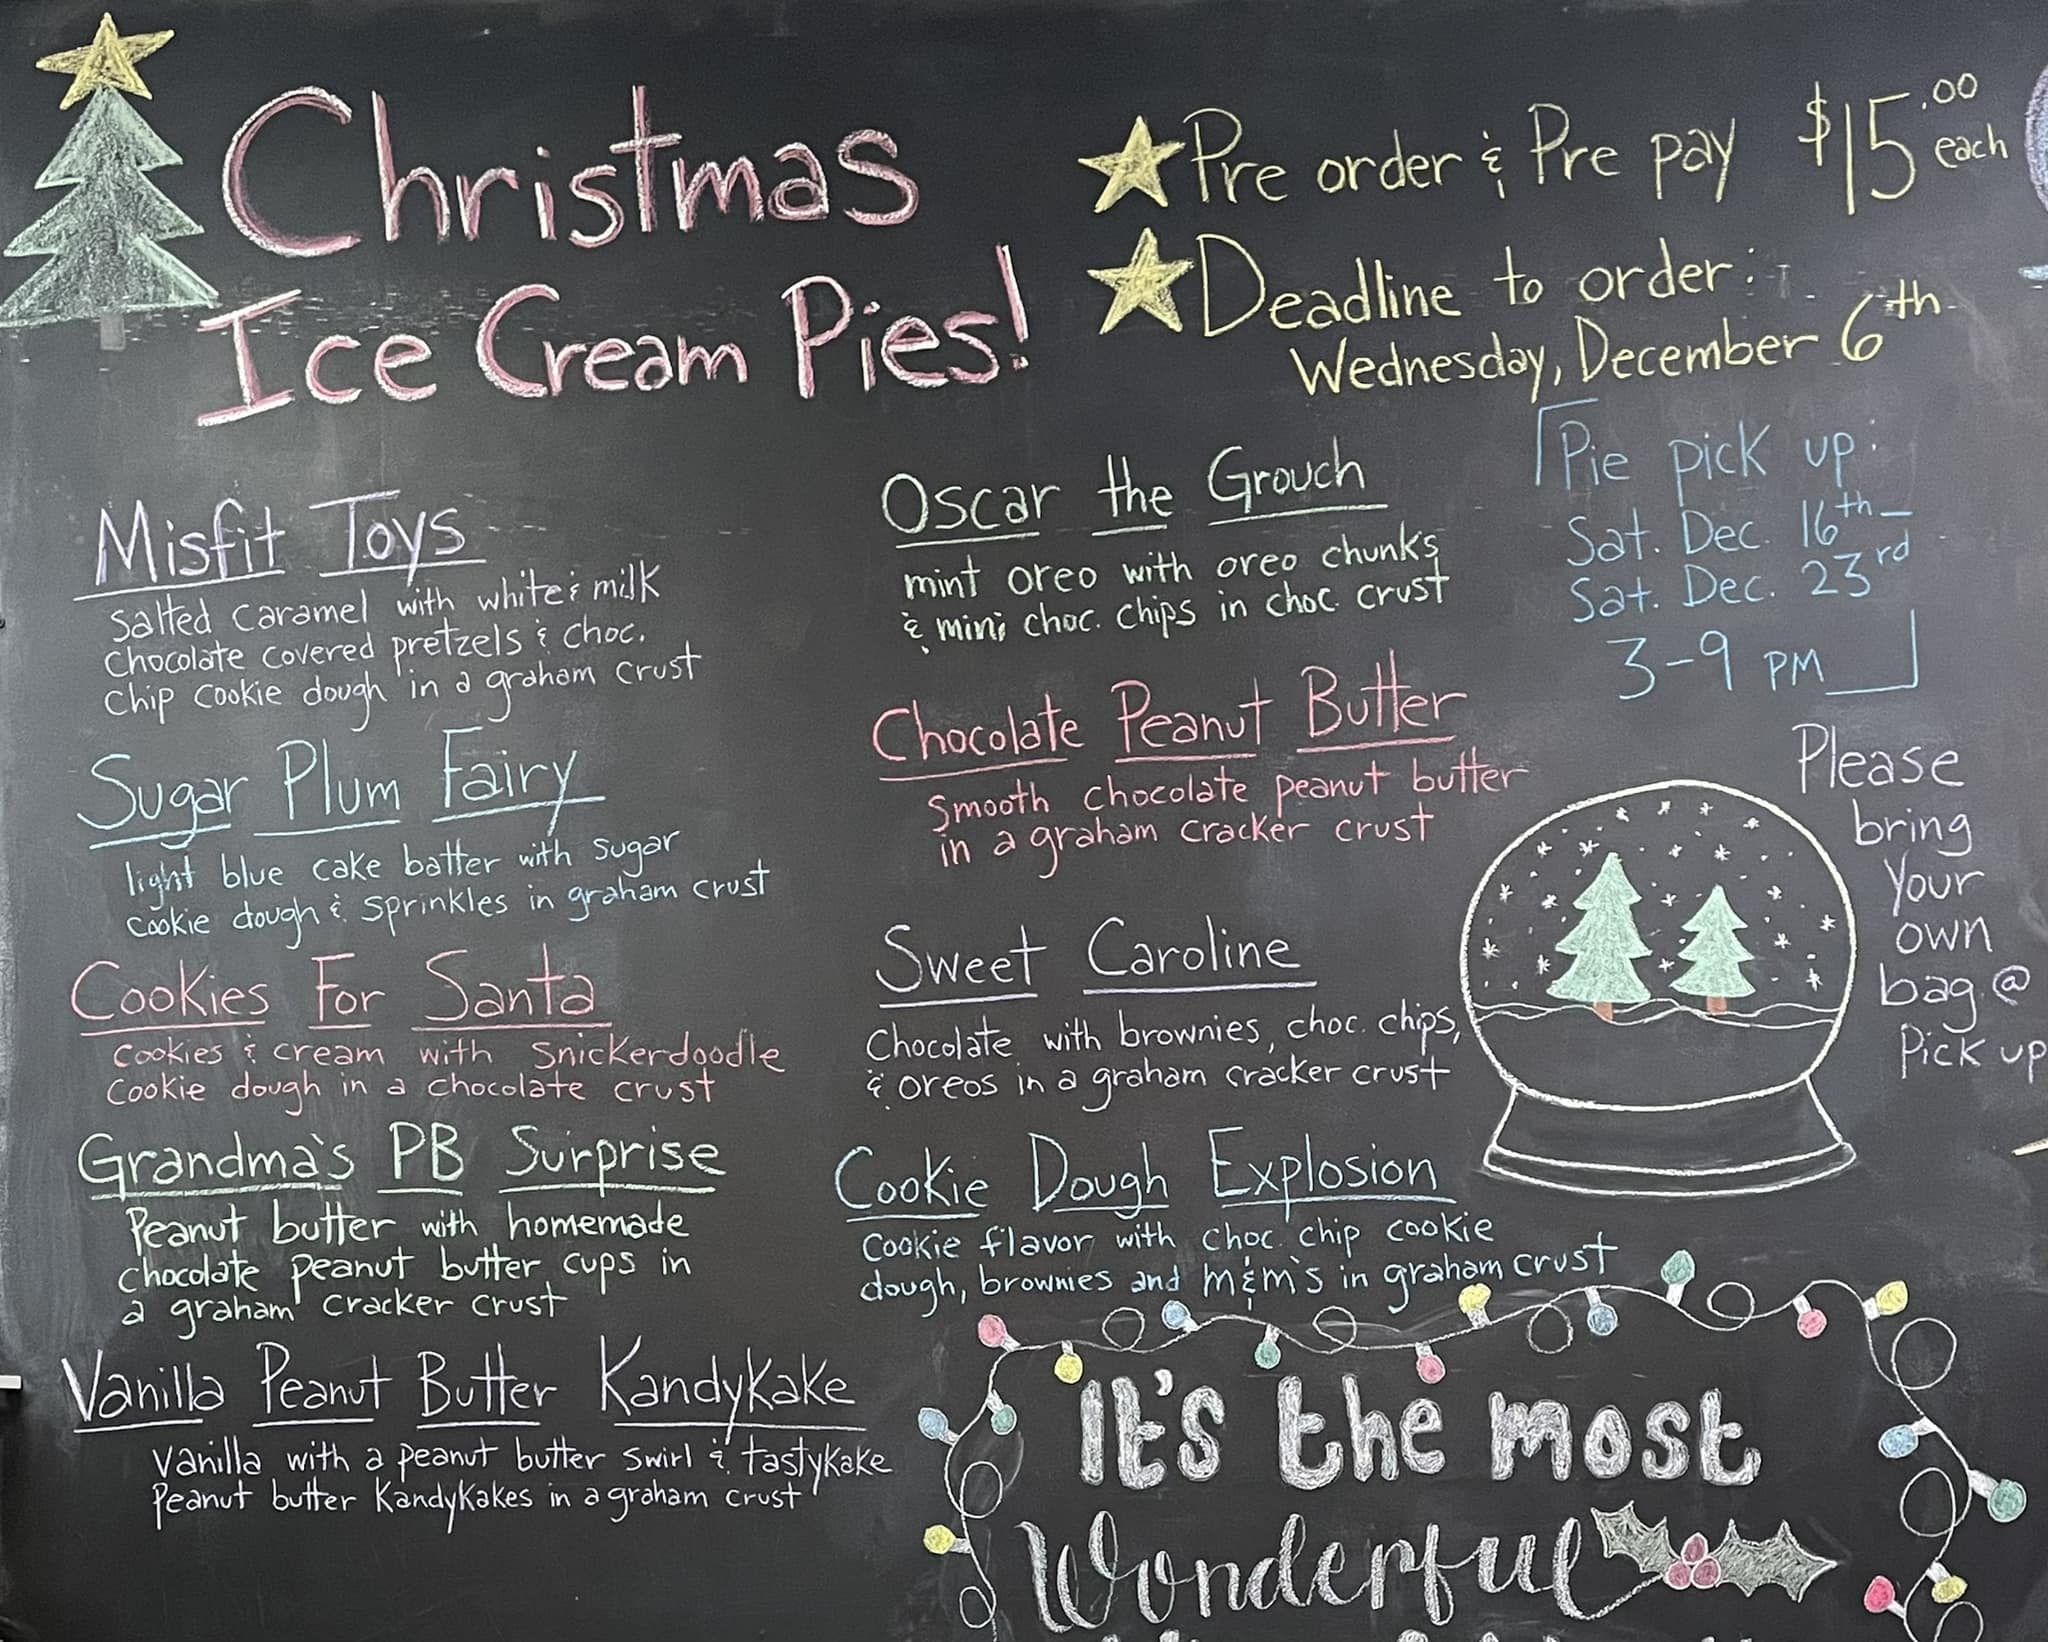 Christmas
Ice Cream Pies!
Pre order & Pre pay $15.00 each
Deadline to order:
Wednesday, December 6th
Pie pick up:
Sat. Dec. 16th -
Sat. Dec. 23rd
3-9 PM
Please
bring
your
own
bag @
Pick up
Misfit Toys
Salted Caramel with white & milk
Chocolate covered pretzels & choc.
Chip cookie dough in a graham crust
Sugar Plum Fairy
light blue cake batter with sugar
cookie dough & sprinkles in graham crust
Cookies For Santa
Cookies & cream with Snickerdoodle
Cookie dough in a chocolate crust
Grandma's PB Surprise
Peanut butter with homemade
chocolate peanut butter cups in
a graham cracker crust
Vanilla Peanut Butter KandyKake
Vanilla with a peanut butter swirl & tastykake
Peanut butter KandyKakes in a graham crust
Oscar the Grouch
mint oreo with oreo chunks
& mini choc. chips in choc. crust
Chocolate Peanut Butter
Smooth chocolate peanut butter
in a graham cracker crust
Sweet Caroline
Chocolate with brownies, choc. chips,
& oreos in a graham cracker crust
Cookie Dough Explosion
Cookie flavor with choc. chip cookie
dough, brownies and m&m's in graham crust
It's the most
Wonderful